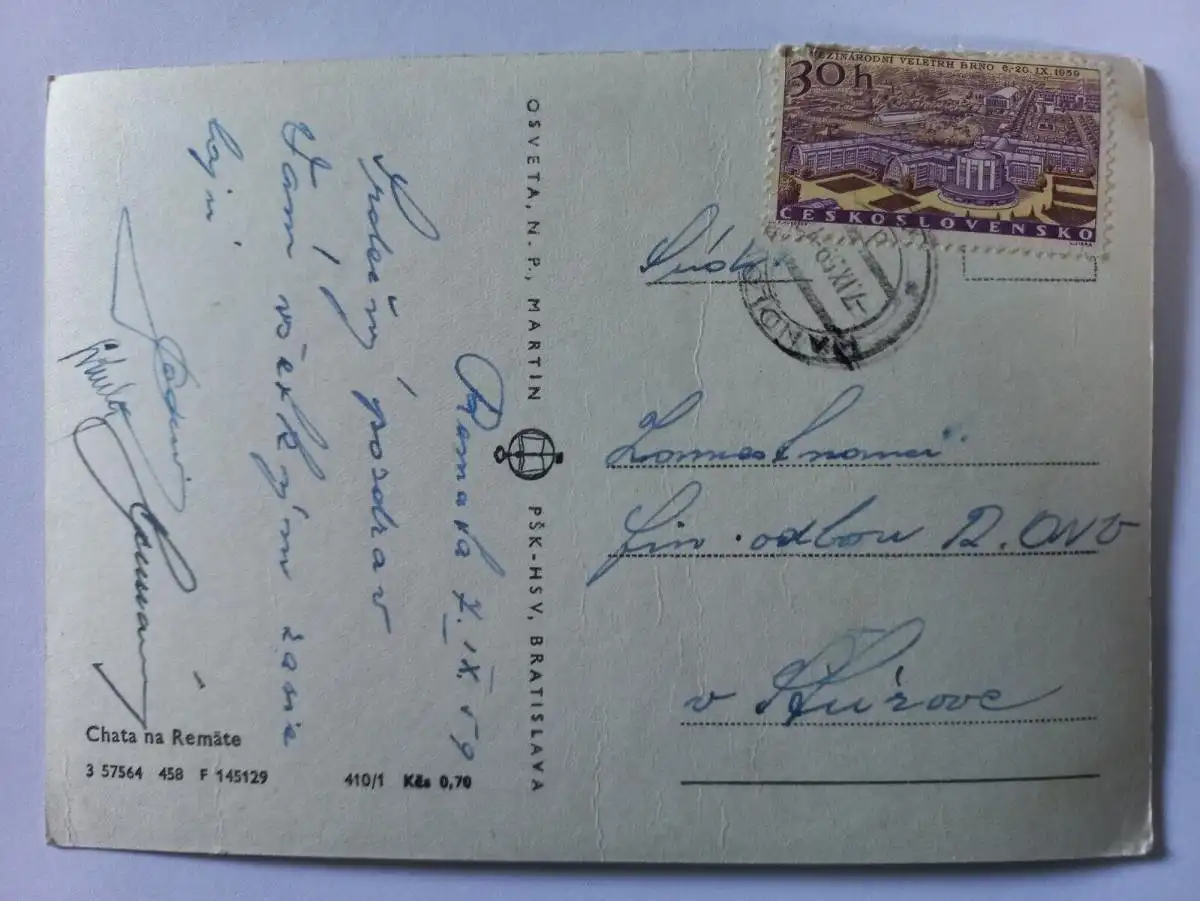 MEZINÁRODNÍ VELETRH BRNO 6.-20.IX.1959
30h
ČESKOSLOVENSKO
HANDLOVÁ
OSVETA, N. P., MARTIN
PŠK-HSV, BRATISLAVA
Remata 7. IX. 59
Srdečný pozdrav
Vám všetkým zasie
Súdr.
Zamestnanci
fin. odboru R. ONV
v Štúrove
Chata na Remäte
3 57564 458 F 145129
410/1 Kčs 0,70